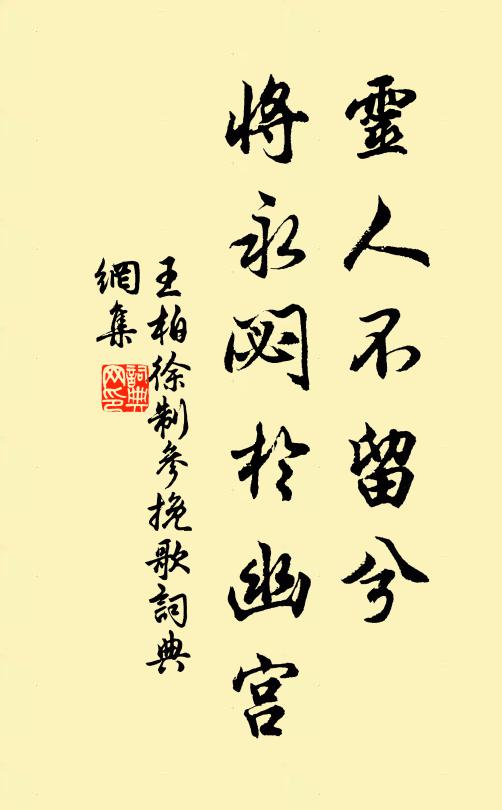 靈人不留兮
將永閟於幽宮
王柏徐制參挽歌詞典
網集
詞典
网印